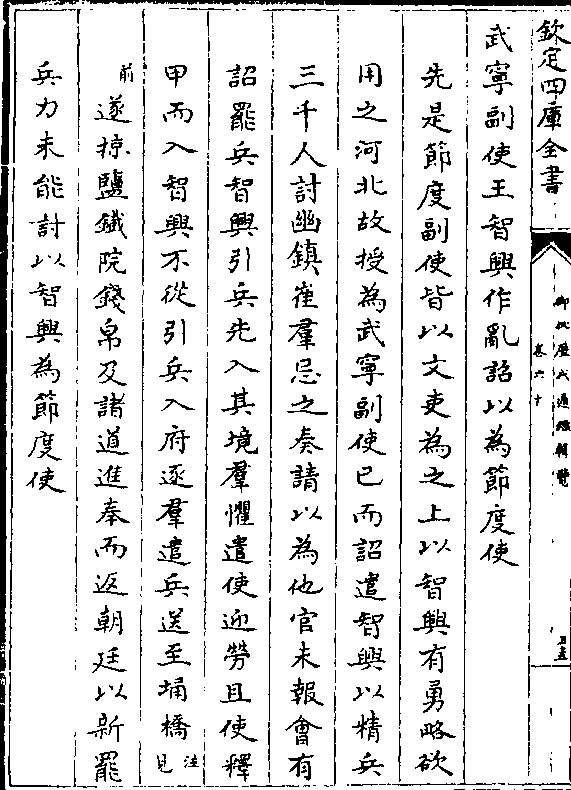 欽定四庫全書
御批歷代通鑑輯覽
卷六十
武寧副使王智興作亂詔以為節度使
先是節度副使皆以文吏為之上以智興有勇略欲
用之河北故授為武寧副使已而詔遣智興以精兵
三千人討幽鎮崔羣忌之奏請以為他官未報會有
詔罷兵智興引兵先入其境羣懼遣使迎勞且使釋
甲而入智興不從引兵入府逐羣遣兵送至埇橋注見
前遂掠鹽鐵院錢帛及諸道進奉而返朝廷以新罷
兵力未能討以智興為節度使